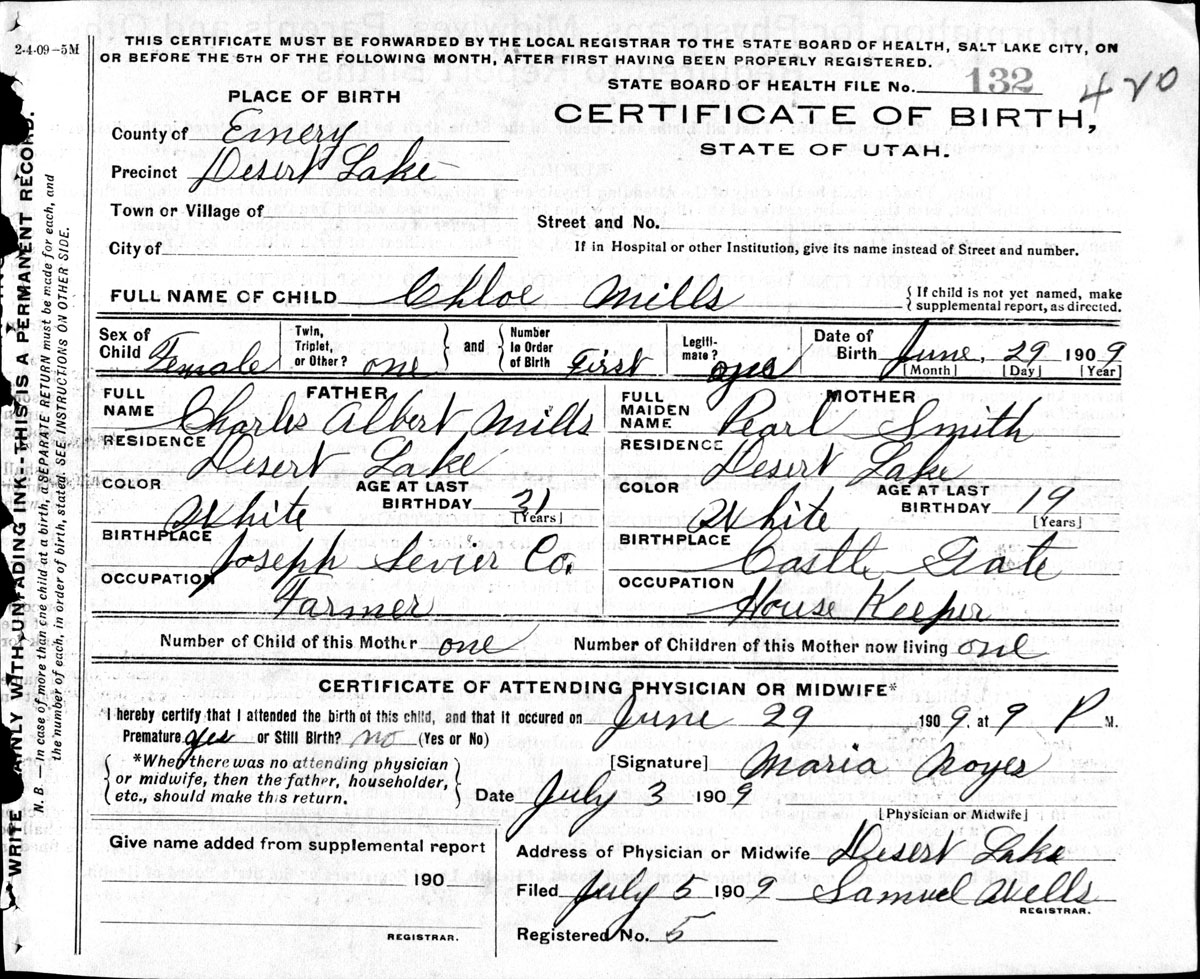 2-4-09-5M
THIS CERTIFICATE MUST BE FORWARDED BY THE LOCAL REGISTRAR TO THE STATE BOARD OF HEALTH, SALT LAKE CITY, ON
OR BEFORE THE 5TH OF THE FOLLOWING MONTH, AFTER FIRST HAVING BEEN PROPERLY REGISTERED.
STATE BOARD OF HEALTH FILE No. 132 420
PLACE OF BIRTH
CERTIFICATE OF BIRTH,
STATE OF UTAH.
County of Emery
Precinct Desert Lake
Town or Village of
Street and No.
City of
If in Hospital or other Institution, give its name instead of Street and number.
FULL NAME OF CHILD Chloe Mills { If child is not yet named, make
supplemental report, as directed.
Sex of Child Female Twin, Triplet, or Other? one } and { Number in Order of Birth First Legiti-mate? yes Date of Birth June, 29 1909
[Month] [Day] [Year]
FATHER
FULL NAME Charles Albert Mills
RESIDENCE Desert Lake
COLOR White AGE AT LAST BIRTHDAY 21 [Years]
BIRTHPLACE Joseph Sevier Co.
OCCUPATION Farmer
MOTHER
FULL MAIDEN NAME Pearl Smith
RESIDENCE Desert Lake
COLOR White AGE AT LAST BIRTHDAY 19 [Years]
BIRTHPLACE Castle Gate
OCCUPATION House Keeper
Number of Child of this Mother one Number of Children of this Mother now living one
CERTIFICATE OF ATTENDING PHYSICIAN OR MIDWIFE*
I hereby certify that I attended the birth of this child, and that it occured on June 29 1909. at 9 P M.
Premature yes or Still Birth? no (Yes or No)
{ *When there was no attending physician
or midwife, then the father, householder,
etc., should make this return. }
[Signature] Maria Noyes
Date July 3 1909
[Physician or Midwife]
Give name added from supplemental report
190
REGISTRAR.
Address of Physician or Midwife Desert Lake
Filed July 5 1909 Samuel Wells
REGISTRAR.
Registered No. 5
WRITE PLAINLY WITH UNFADING INK--THIS IS A PERMANENT RECORD.
N. B.—In case of more than one child at a birth, a SEPARATE RETURN must be made for each, and
the number of each, in order of birth, stated. SEE INSTRUCTIONS ON OTHER SIDE.